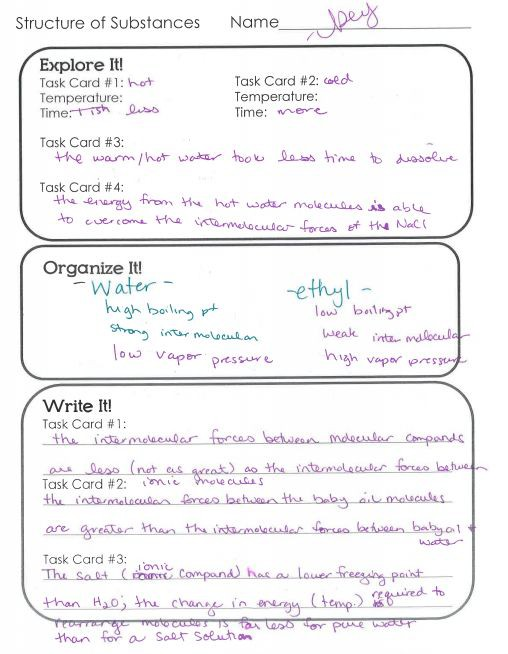 Structure of Substances Name Key
Explore It!
Task Card #1: hot Task Card #2: cold
Temperature: Temperature:
Time: less Time: more
Task Card #3:
the warm/hot water took less time to dissolve
Task Card #4:
the energy from the hot water molecules is able
to overcome the intermolecular forces of the NaCl
Organize It!
- Water - - ethyl -
high boiling pt low boiling pt
strong intermolecular weak intermolecular
low vapor pressure high vapor pressure
Write It!
Task Card #1:
the intermolecular forces between molecular compands
are less (not as great) as the intermolecular forces between
Task Card #2: ionic molecules
the intermolecular forces between the baby oil molecules
are greater than the intermolecular forces between baby oil +
water
Task Card #3:
The salt (ionic compand) has a lower freezing point
than H2O; the change in energy (temp.) required to
rearrange molecules is far less for pure water
than for a salt solution